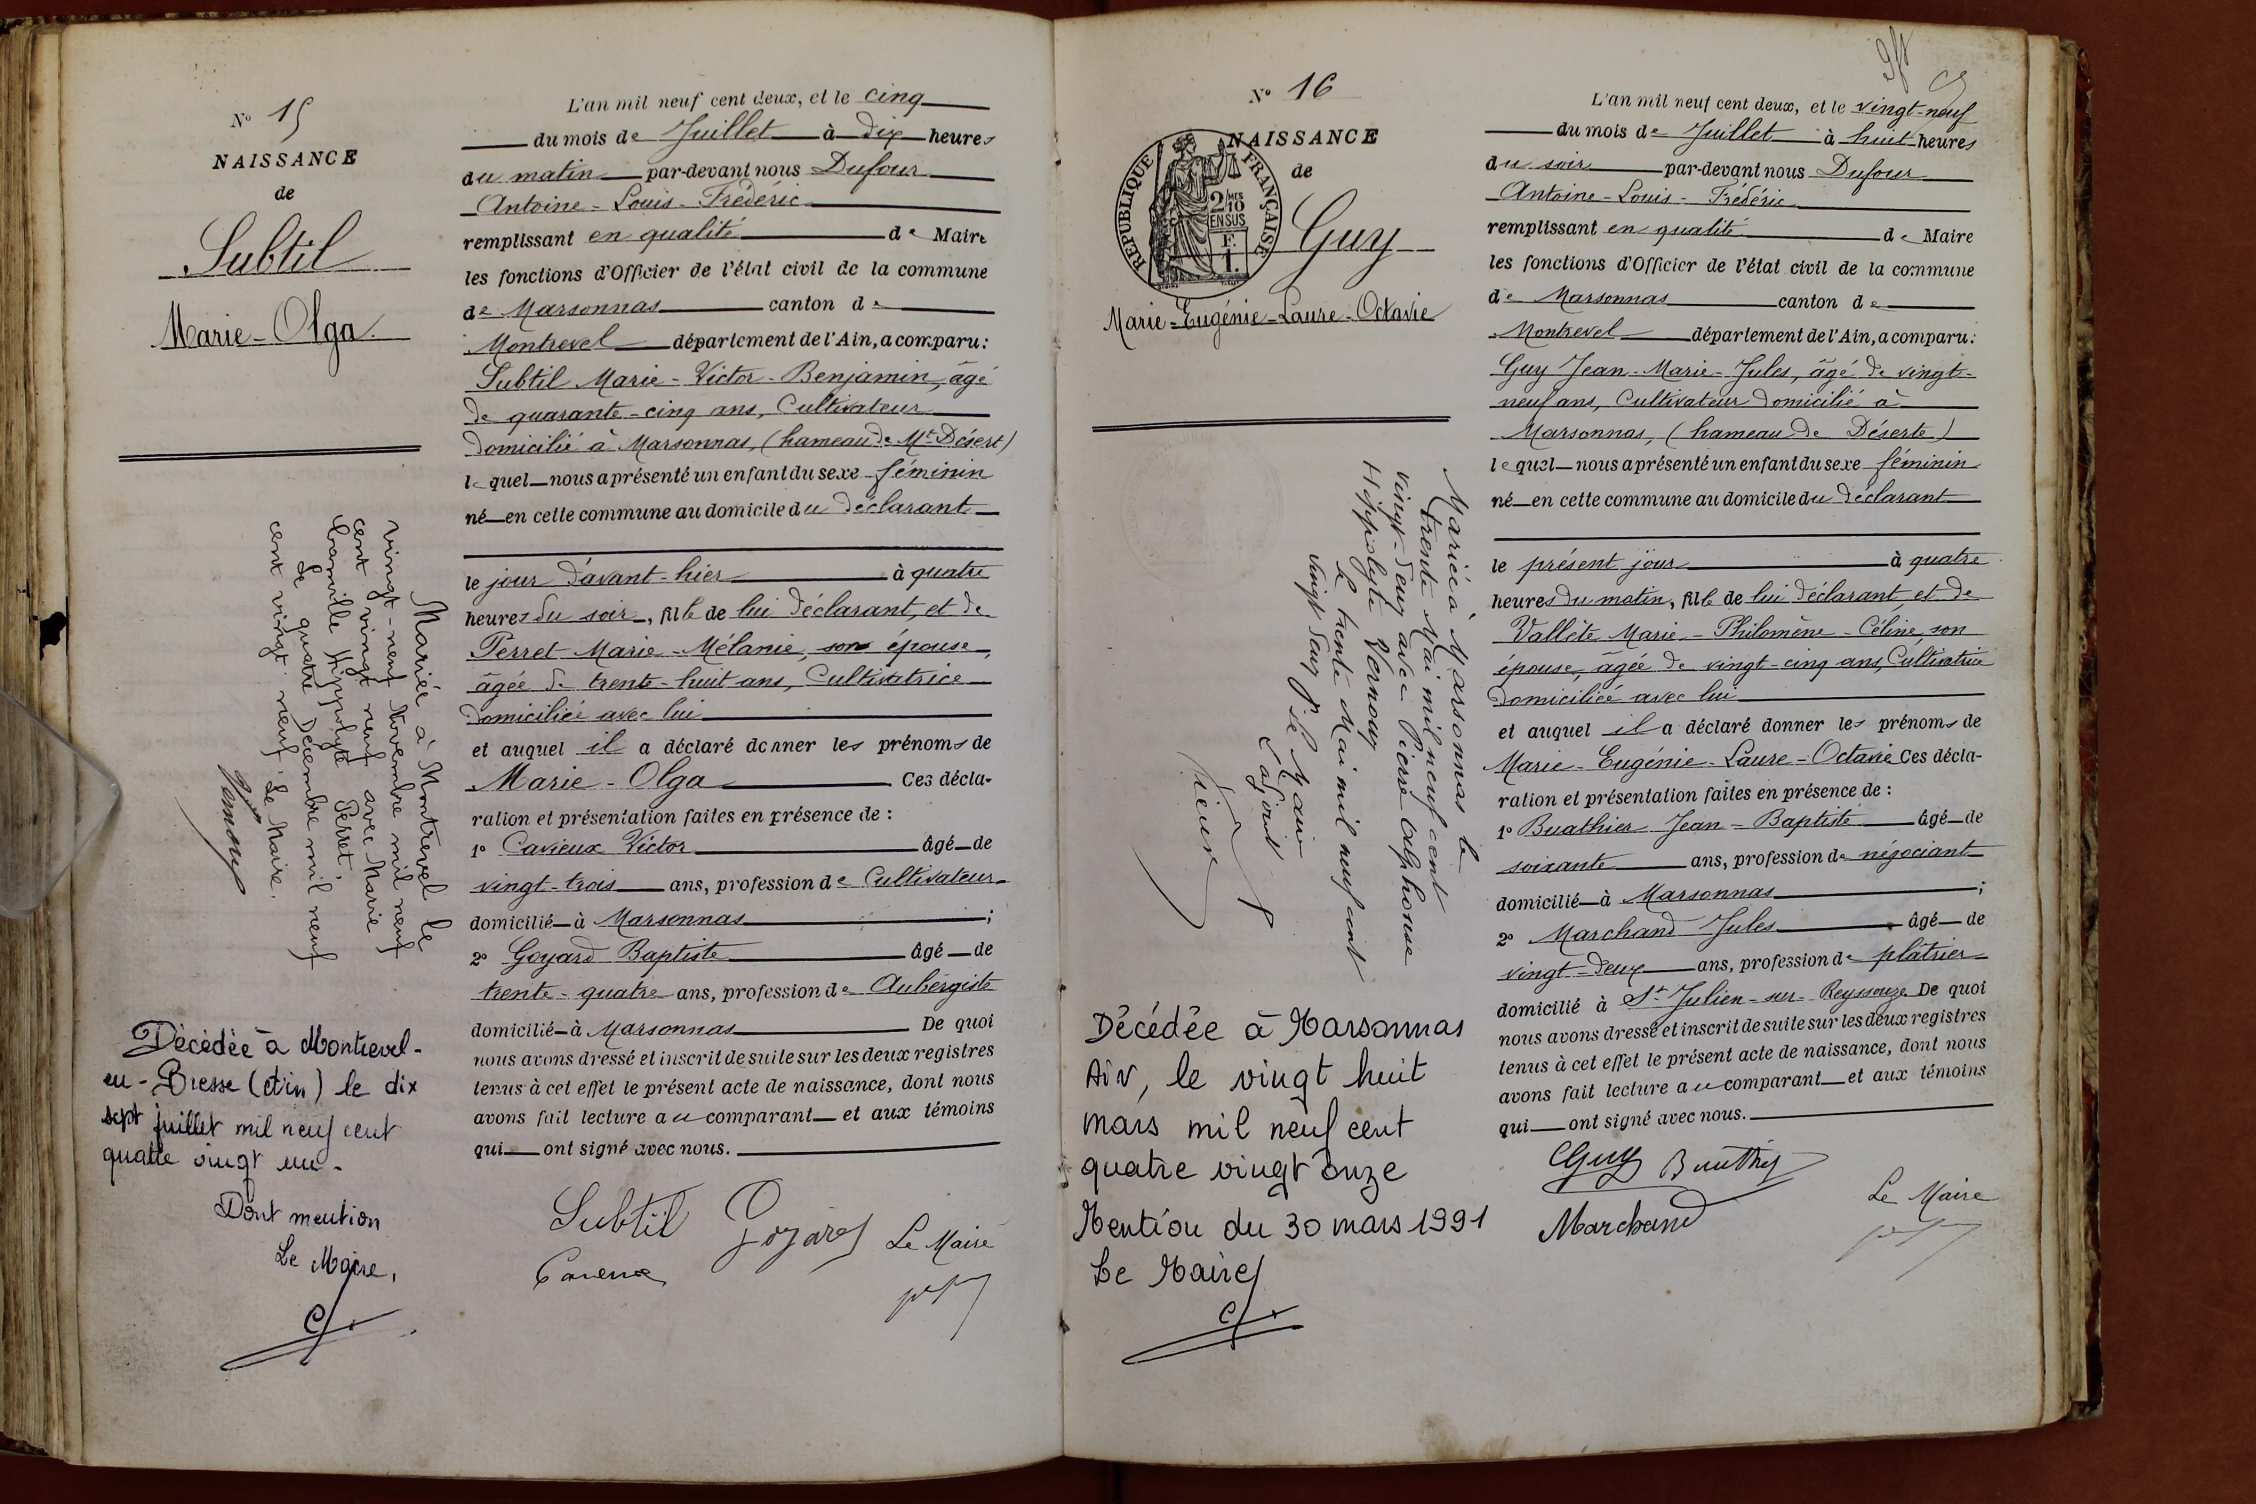 Nº 15
NAISSANCE
de
Subtil
Marie-Olga
L'an mil neuf cent deux, et le cinq
du mois de Juillet à dix heures
du matin par-devant nous Dufour
Antoine-Louis-Frédéric
remplissant en qualité de Maire
les fonctions d'Officier de l'état civil de la commune
de Marsonnas canton de
Montrevel département de l'Ain, a comparu:
Subtil Marie-Victor-Benjamin, âgé
de quarante-cinq ans, Cultivateur
domicilié à Marsonnas, (hameau de Mt Désert)
lequel nous a présenté un enfant du sexe féminin
né en cette commune au domicile du déclarant
le jour d'avant-hier à quatre
heures du soir, fille de lui déclarant, et de
Perret Marie-Mélanie, son épouse,
âgée de trente-huit ans, Cultivatrice
domiciliée avec lui
et auquel il a déclaré donner les prénoms de
Marie-Olga Ces décla-
ration et présentation faites en présence de :
1º Cavieux Victor âgé de
vingt-trois ans, profession de Cultivateur
domicilié à Marsonnas ;
2º Goyard Baptiste âgé de
trente-quatre ans, profession de Aubergiste
domicilié à Marsonnas De quoi
nous avons dressé et inscrit de suite sur les deux registres
tenus à cet effet le présent acte de naissance, dont nous
avons fait lecture au comparant et aux témoins
qui ont signé avec nous.
Subtil Goyard Le Maire
Mariée à Montrevel le
vingt-neuf Novembre mil neuf
cent vingt neuf avec Marie
Camille Hippolyte Perret.
Le quatre Décembre mil neuf
cent vingt neuf. Le Maire.
Décédée à Montrevel-
en-Bresse (Ain) le dix
sept juillet mil neuf cent
quatre vingt un-
Dont mention
Le Maire,
Nº 16
NAISSANCE
de
REPUBLIQUE FRANÇAISE
2/10MES
EN SUS
F.
1.
Guy
Marie-Eugénie-Laure-Octavie
L'an mil neuf cent deux, et le vingt-neuf
du mois de Juillet à huit heures
du soir par-devant nous Dufour
Antoine-Louis-Frédéric
remplissant en qualité de Maire
les fonctions d'Officier de l'état civil de la commune
de Marsonnas canton de
Montrevel département de l'Ain, a comparu:
Guy Jean-Marie-Jules, âgé de vingt-
neuf ans, Cultivateur domicilié à
Marsonnas, (hameau de Déserte)
lequel nous a présenté un enfant du sexe féminin
né en cette commune au domicile du déclarant
le présent jour à quatre
heures du matin, fille de lui déclarant et de
Vallête Marie-Philomène-Céline, son
épouse, âgée de vingt-cinq ans, Cultivatrice
domiciliée avec lui
et auquel il a déclaré donner les prénoms de
Marie-Eugénie-Laure-Octavie Ces décla-
ration et présentation faites en présence de :
1º Buathier Jean-Baptiste âgé de
soixante ans, profession de négociant
domicilié à Marsonnas ;
2º Marchand Jules âgé de
vingt-deux ans, profession de plâtrier
domicilié à St Julien-sur-Reyssouze De quoi
nous avons dressé et inscrit de suite sur les deux registres
tenus à cet effet le présent acte de naissance, dont nous
avons fait lecture au comparant et aux témoins
qui ont signé avec nous.
Guy Buathier
Marchand Le Maire
Mariée à Marsonnas le
trente Mai mil neuf cent
vingt-deux avec Pierre Alphonse
Hippolyte Vernoux
Le trente Mai mil neuf cent
vingt deux Pr le Maire
L'adjoint
Décédée à Marsonnas
Ain, le vingt huit
mars mil neuf cent
quatre vingt onze
Mention du 30 mars 1991
Le Maire